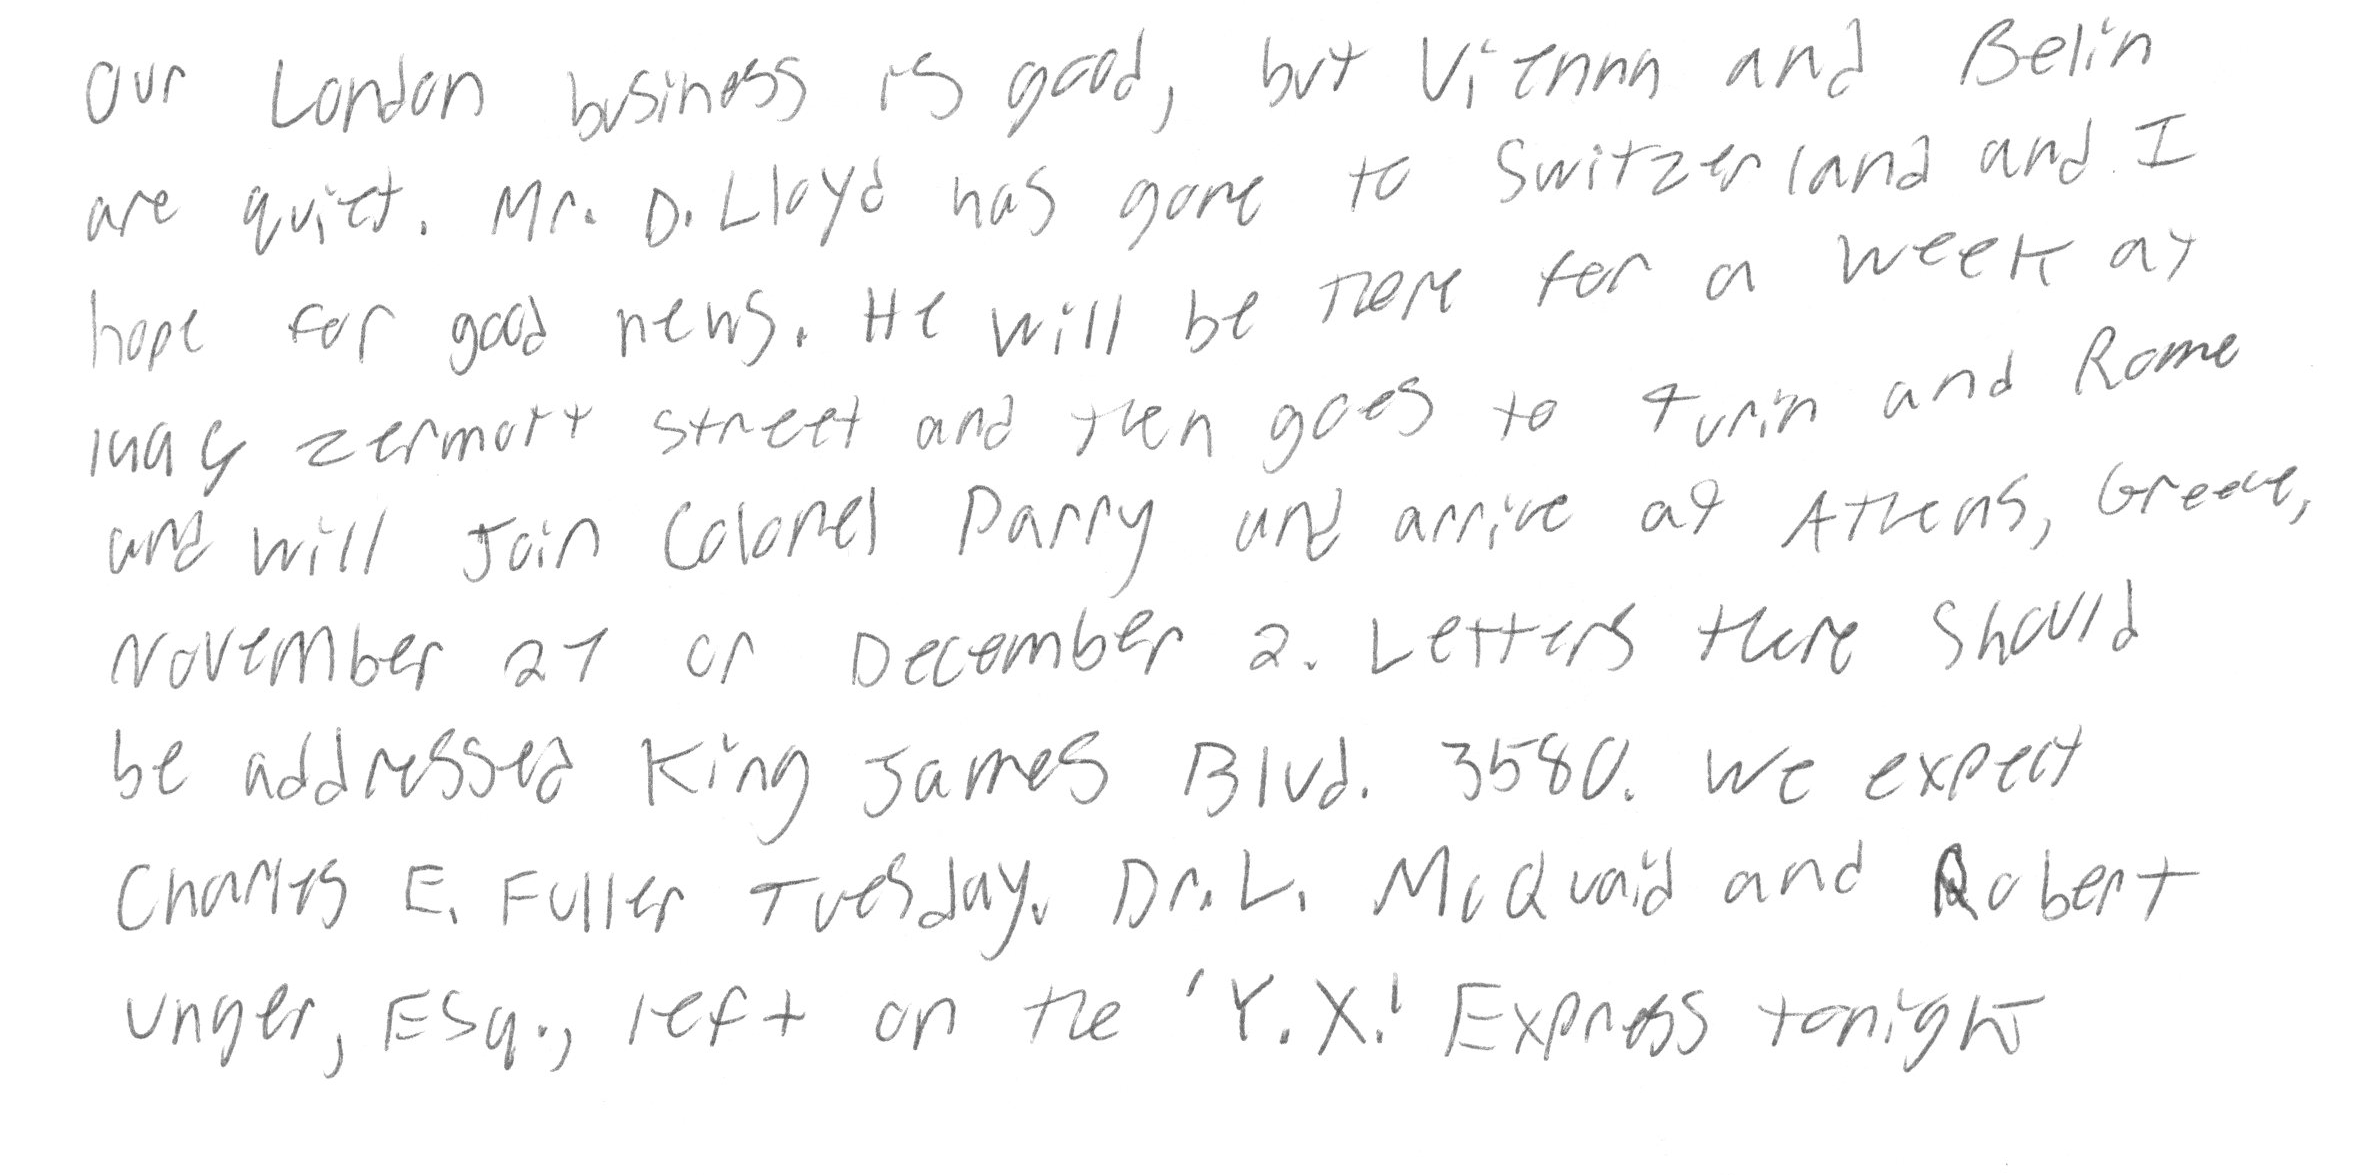 Our London business is good, but Vienna and Belin
are quiet. Mr. D. Lloyd has gone to Switzerland and I
hope for good news. He will be there for a week at
1496 zermott street and then goes to Turin and Rome
and will Join Colonel Parry and arrive at Athens, Greece,
November 27 or December 2. Letters there should
be addressed King James Blvd. 3580. We expect
Charles E. Fuller Tuesday. Dr. L. McQuaid and Robert
Unger, Esq., left on the 'Y.X.' Express tonight